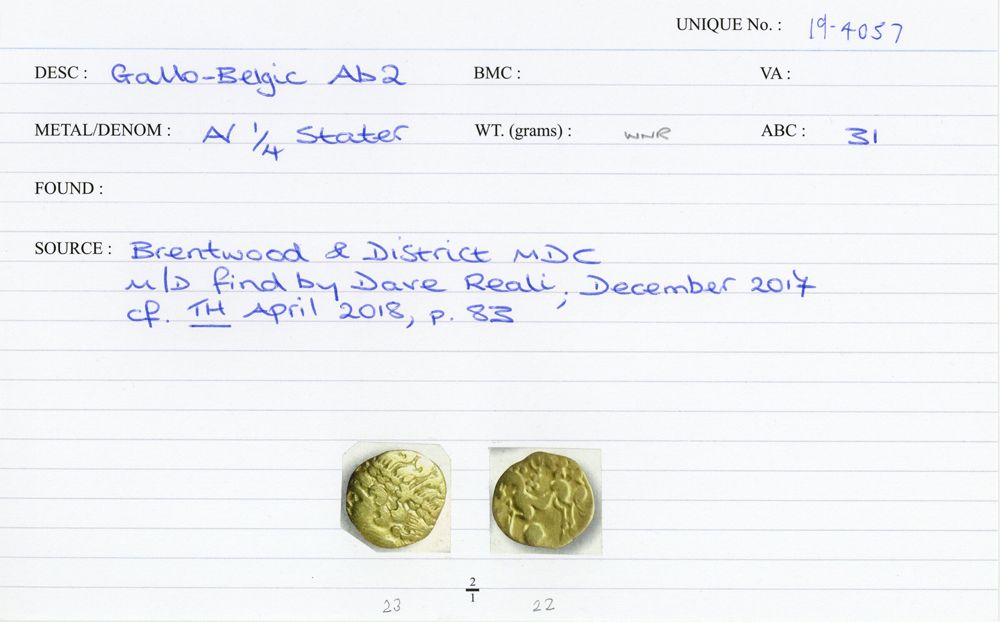 UNIQUE No. : 19-4057
DESC : Gallo-Belgic Ab2 BMC : VA :
METAL/DENOM : AV 1/4 Stater WT. (grams) : WNR ABC : 31
FOUND :
SOURCE : Brentwood & District MDC
M/D find by Dave Reali, December 2017
cf. TH April 2018, p. 83
2/1
23 22